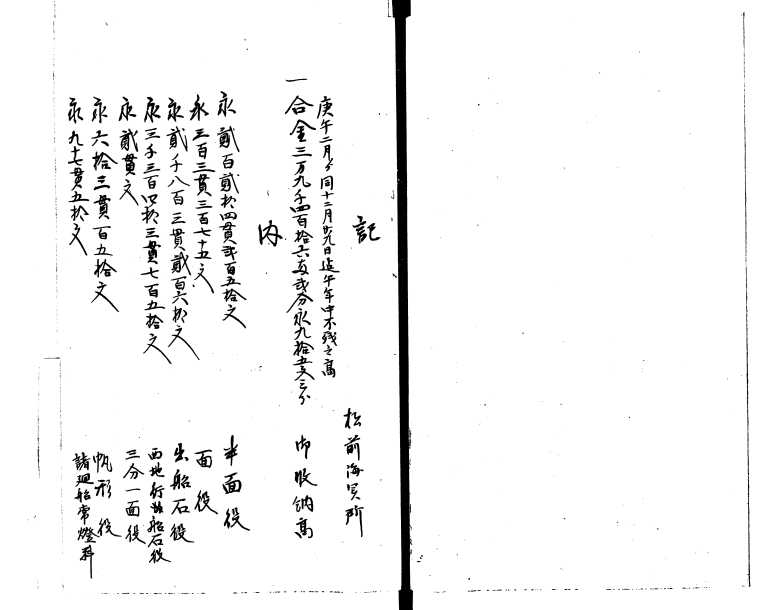 記
松前海官所
庚午二月ゟ同十二月廿九日迄午年中不残之高
一合金三万九千四百拾六両弐分永九拾五文三分 御収納高
内
永貳百貳拾四貫弐百五拾文 半面役
永三百三貫三百七十五文 面役
永貳千八百三貫貳百六拾文 出船石役
永三千三百四拾三貫七百五拾文 西地行出船石役
永貳貫文 三分一面役
永六拾三貫百五拾文 帆形役
永九十七貫五拾文 諸廻船常燈料